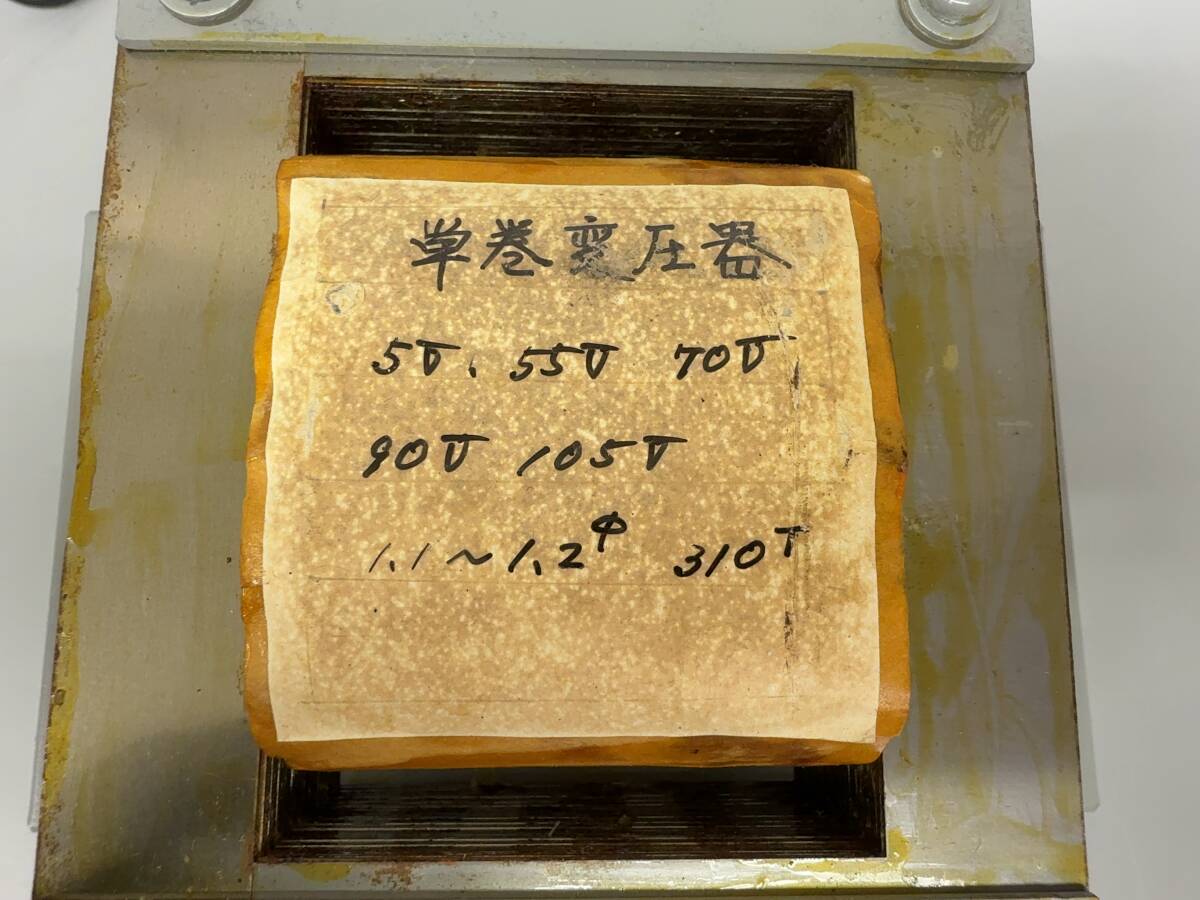 単巻変圧器
5V、55V 70V
90V 105V
1.1～1.2φ 310T